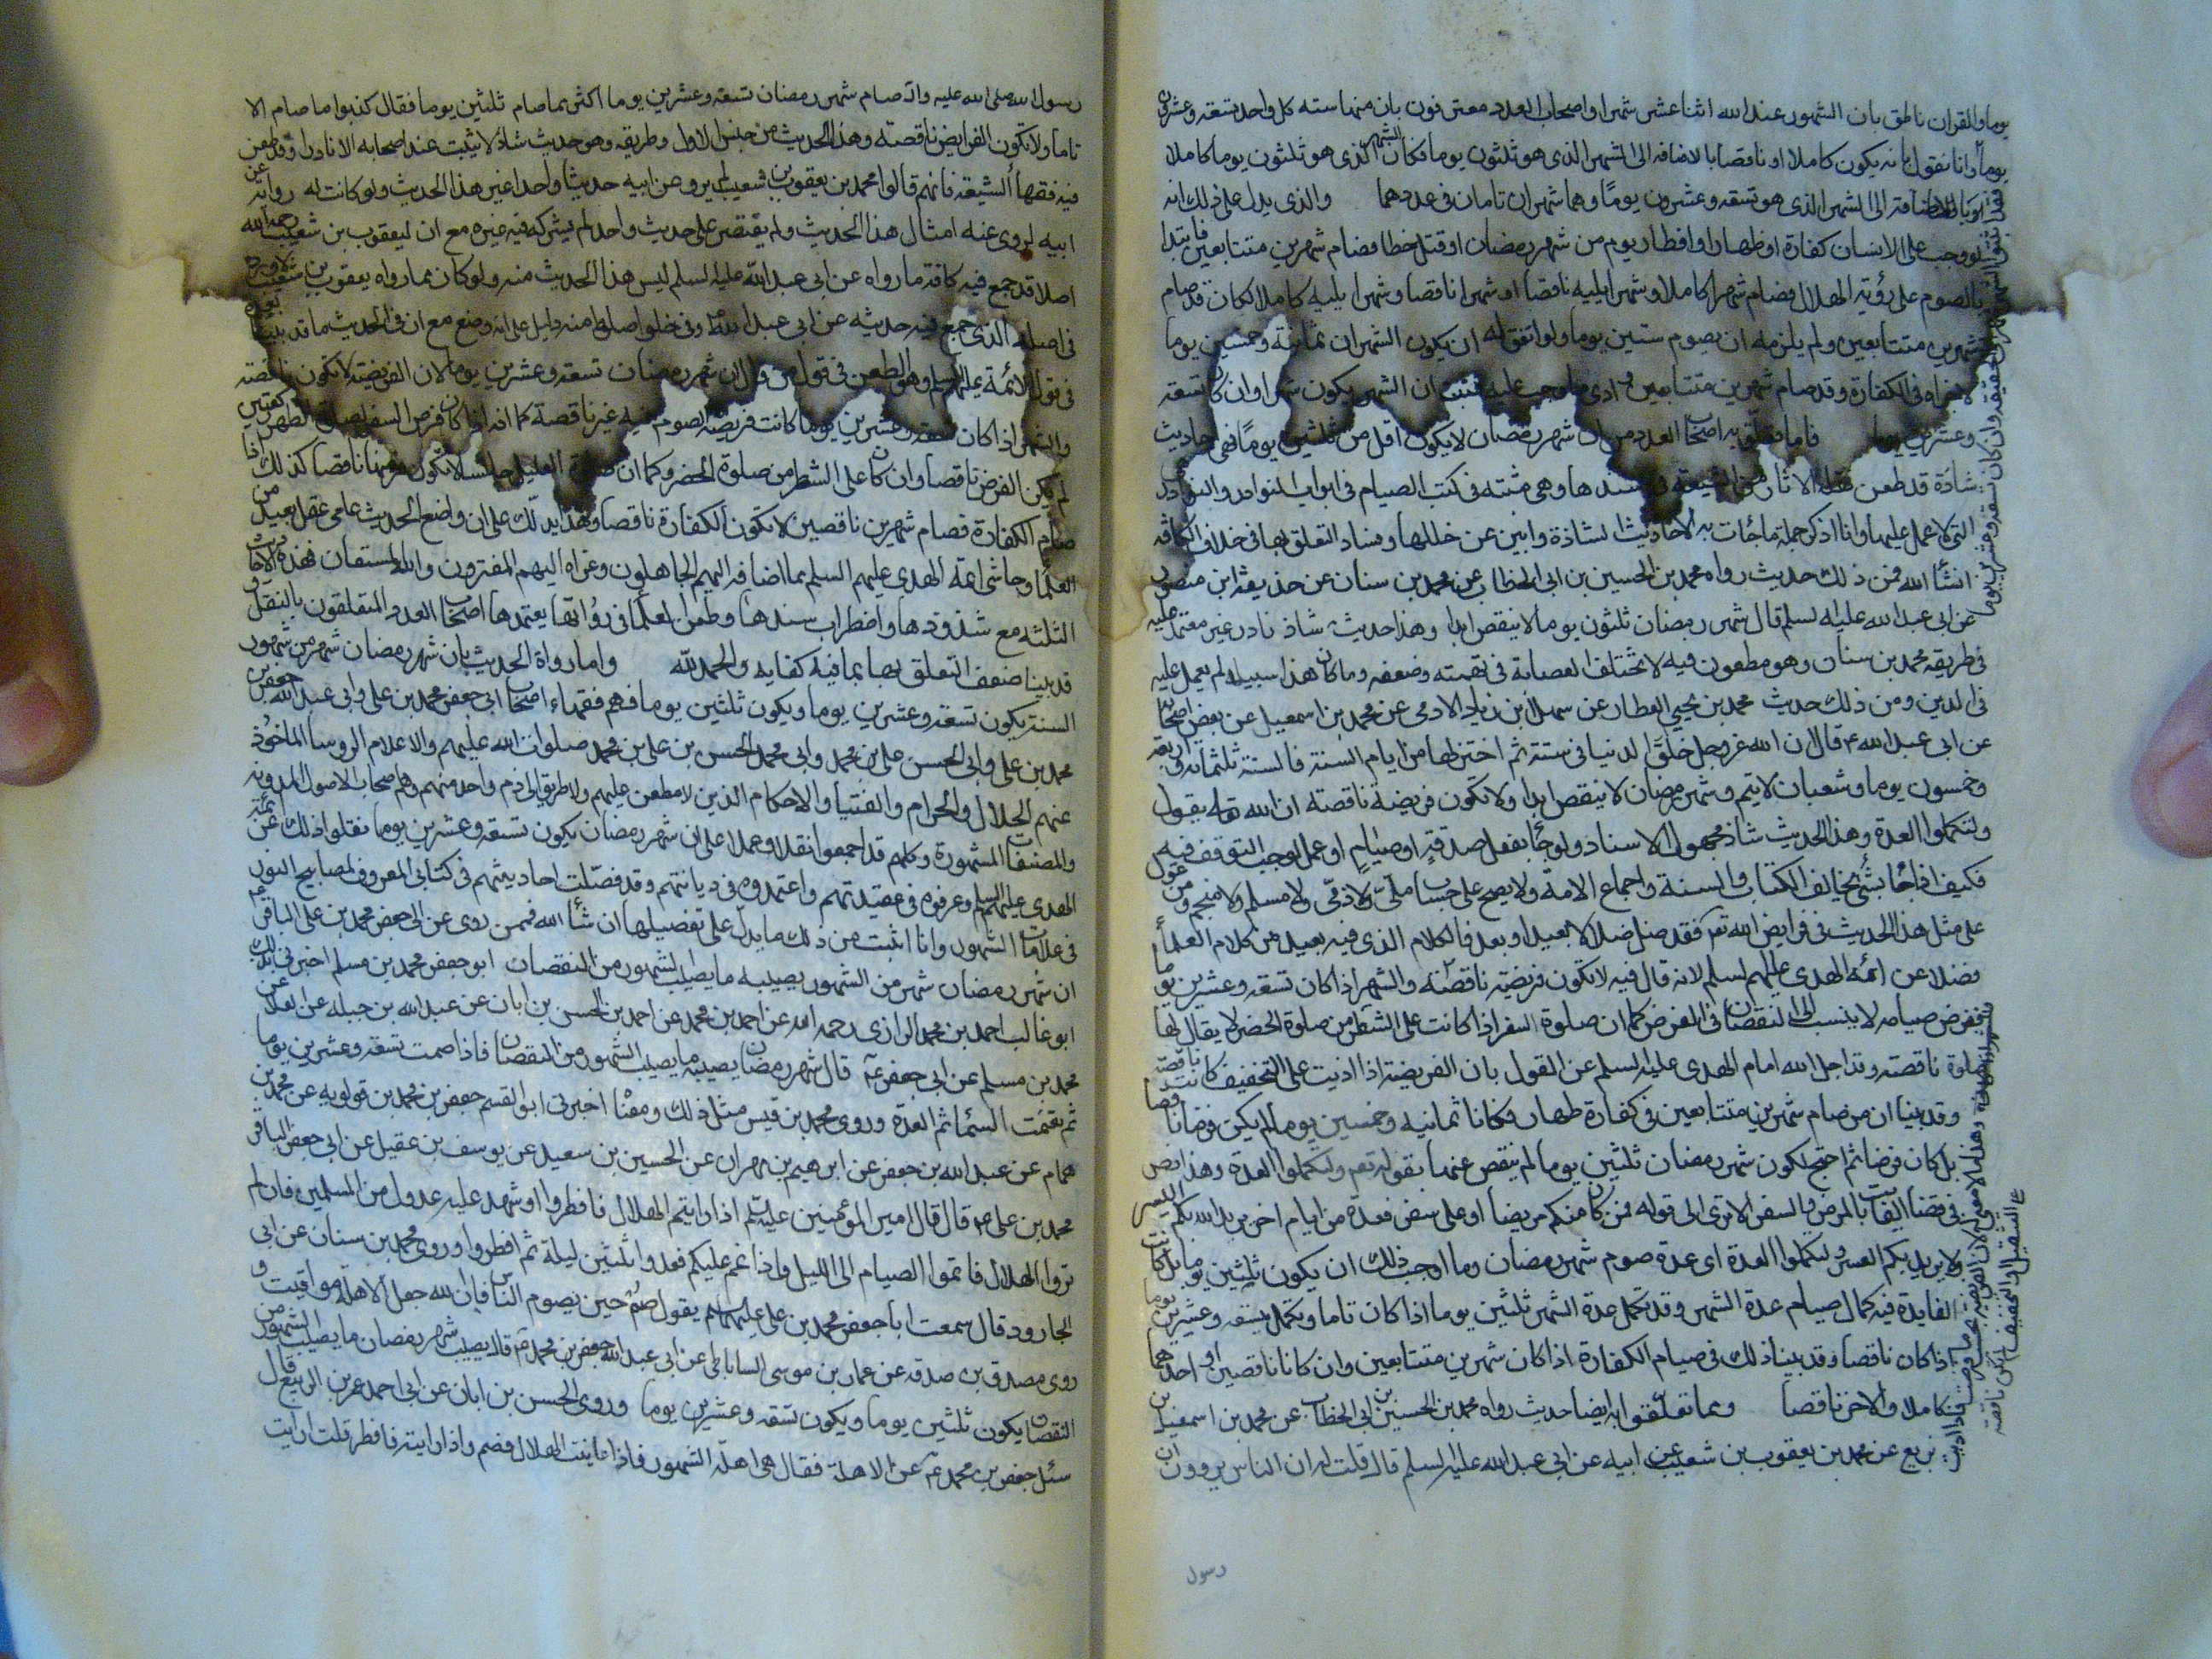 يوما والقران ناطق بان الشهور عند الله اثنا عشر شهرا واصحاب العدد معترفون بان منها سته كل واحد تسعة وعشرون
يوما وانا نقول بانه يكون كاملا او ناقصا بالاضافه الى الشهر الذى هو ثلثون يوما فكان الشهر الذى هو ثلثون يوما كاملا
بالاضافة الى الشهر الذى هو تسعة وعشرون يومًا وهما شهران تامان فى عددهما والذى يدل على ذلك انه
لو وجب على الانسان كفارة او ظهار او افطار يوم من شهر رمضان او قتل خطا فصام شهرين متتابعين فابتدا
بالصوم على رؤية الهلال فصام شهرا كاملا وشهرا يليه ناقصا او شهرا ناقصا وشهرا يليه كاملا لكان قد صام
شهرين متتابعين ولم يلزمه ان يصوم ستين يوما ولو اتفق له ان يكون الشهران ثمانية وخمسين يوما
لاجزاه فى الكفارة وقد صام شهرين متتابعين وادى ما وجب عليه فثبت ان الشهر يكون شهرا وان كان تسعة
وعشرين يوما فاما ما تعلق به اصحاب العدد من ان شهر رمضان لا يكون اقل من ثلثين يومًا فهى احاديث
شاذة قد طعن نقلة الاثار من الشيعة فى سندها وهى مثبته فى كتب الصيام فى ابواب النوادر والنوادر
التى لا عمل عليها وانا اذكر جملة ما جأت به الاحاديث الشاذة وابين عن خللها وفساد التعلق بها فى خلاف الكافه
انشأ الله فمن ذلك حديث رواه محمد بن الحسين بن ابى الخطاب عن محمد بن سنان عن حذيفة ابن منصور
عن ابى عبد الله عليه السلم قال شهر رمضان ثلثون يوما لا ينقص ابدا وهذا حديث شاذ نادر غير معتمد عليه
فى طريقه محمد بن سنان وهو مطعون فيه لا تختلف العصابة فى تهمته وضعفه وما كان هذا سبيله لم يعمل عليه
فى الدين ومن ذلك حديث محمد بن يحيى العطار عن سهل بن زياد الادمى عن محمد بن اسمعيل عن بعض اصحابه
عن ابى عبد الله ع قال ان الله عز وجل خلق الدنيا فى ستة ثم اختزلها من ايام السنة فالسنة ثلثمائة واربعة
وخمسون يوما وشعبان لا يتم وشهر رمضان لا ينقص ابدا ولا تكون فريضة ناقصة ان الله تعالى يقول
ولتكملوا العدة وهذا الحديث شاذ مجهول الاسناد ولو جأ بفعل صدقةٍ او صيامٍ او عمل لوجب التوقف فيه
فكيف اذا جأ بشئ يخالف الكتاب والسنة واجماع الامة ولا يصح على حساب ملّى ولا ذمّى ولا مسلم ولا منجم ومن عول
على مثل هذا الحديث فى فرايض الله تعالى فقد ضل ضلالا بعيدا وبعد فالكلام الذى فيه بعيد من كلام العلمأ
فضلا عن ائمة الهدى عليهم السلم لانه قال فيه لا تكون فريضة ناقصة والشهر اذا كان تسعة وعشرين يوما
ففرض صيامه لا ينسب الى النقصان فى الفرض كما ان صلوة السفر اذا كانت على الشطر من صلوة الحضر لا يقال لها
صلوة ناقصة وقد اجل الله امام الهدى عليه السلم عن القول بان الفريضة اذا اديت على التخفيف كانت ناقصة
وقد بينا ان من صام شهرين متتابعين فى كفارة ظهار فكانا ثمانية وخمسين يوما لم يكن فرضا ناقصا
بل كان فرضا تاما ثم احتج لكون شهر رمضان ثلثين يوما لم ينقص عنها بقوله تعالى ولتكملوا العدة وهذا نص
فى قضأ الفايت بالمرض والسفر الا ترى الى قوله فمن كان منكم مريضا او على سفر فعدة من ايام اخر يريد الله بكم اليسر
ولا يريد بكم العسر ولتكملوا العدة اى عدة صوم شهر رمضان وما اوجب ذلك ان يكون ثلثين يوما بل كانت
الفايدة فيه كمال صيام عدة الشهر وقد تكمل عدة الشهر ثلثين يوما اذا كان تاما وتكمل بتسعه وعشرين يوما
اذا كان ناقصا وقد بينا ذلك فى صيام الكفارة اذا كان شهرين متتابعين وان كانا ناقصين او احدهما
كاملا والاخر ناقصا ومما تعلقوا به ايضا حديث رواه محمد بن الحسين بن ابى الخطاب عن محمد بن اسمعيل بن
بزيع عن محمد بن يعقوب بن شعيب عن ابيه عن ابى عبد الله عليه السلم قال قلت له ان الناس يروون ان
رسول
رسول الله صلى الله عليه واله صام شهر رمضان تسعة وعشرين يوما اكثر مما صام ثلثين يوما فقال كذبوا ما صام الا
تاما ولا تكون الفرايض ناقصة وهذا الحديث من جنس الاول وطريقه وهو حديث شاذ لا يثبت عند اصحابه الا نادرا وقد طعن
فيه فقهأ الشيعة فانهم قالوا محمد بن يعقوب بن شعيب لم يرو عن ابيه حديثا واحدا غير هذا الحديث ولو كانت له رواية عن
ابيه لروى عنه امثال هذا الحديث ولم يقتصر على حديث واحد لم يشركه فيه غيره مع ان ليعقوب بن شعيب رحمه الله
اصلا قد جمع فيه كافة ما رواه عن ابى عبد الله عليه السلم ليس هذا الحديث منه ولو كان مما رواه يعقوب بن شعيب لاورده
فى اصله الذى جمع فيه حديثه عن ابى عبد الله ع وفى خلو اصله منه دليل على انه وضع مع ان فى الحديث ما قد بينا بعده
فى قول الائمة عليهم السلم وهو الطعن فى قول من قال ان شهر رمضان تسعة وعشرين يوما لان الفريضة لا تكون ناقصة
والشهر اذا كان تسعة وعشرين يوما كانت فريضة الصوم فيه غير ناقصة كما انه اذا كان فرض السفر لصلوة الظهر ركعتين
لم يكن الفرض ناقصا وان كان على الشطر من صلوة الحضر وكما ان صلوة العليل جالسا لا تكون فرضها ناقصا كذلك اذا
صام الكفارة فصام شهرين ناقصين لا تكون الكفارة ناقصا وهذا يدلك على ان واضع الحديث عامى غفل بعيد من
العلمأ وحاشى ائمة الهدى عليهم السلم مما اضافه اليهم الجاهلون وعزاه اليهم المفترون والله المستعان فهذه الاحاديث
الثلثة مع شذوذها واضطراب سندها وطعن العلمأ فى رواتها يعتمدها اصحاب العدد والمتعلقون بالنقل و
قد بينا ضعف التعلق بها بما فيه كفاية والحمد لله واما رواة الحديث بان شهر رمضان شهر من شهور
السنة يكون تسعة وعشرين يوما ويكون ثلثين يوما فهم فقهاء اصحاب ابى جعفر محمد بن على وابى عبد الله جعفر بن
محمد بن على وابى الحسن على بن محمد وابى محمد الحسن بن على بن محمد صلوات الله عليهم والاعلام الروسا الماخوذ
عنهم الحلال والحرام والفتيا والاحكام الذين لا مطعن عليهم ولا طريق الى ذم واحد منهم وهم اصحاب الاصول المدونه
والمصنفات المشهورة وكلهم قد اجمعوا نقلا وعملا على ان شهر رمضان يكون تسعة وعشرين يوما نقلوا ذلك عن ائمة
الهدى عليهم السلم وعرفوه فى عقيدتهم واعتمدوه فى ديانتهم وقد فصّلت احاديثهم فى كتابى المعروف بمصابيح النور
فى علامات الشهور وانا اثبت من ذلك ما يدل على تفصيلها ان شأ الله فممن روى عن ابى جعفر محمد بن على الباقر ع
ان شهر رمضان شهر من الشهور يصيبه ما يصيب الشهور من النقصان ابو جعفر محمد بن مسلم اخبرنى بذلك
ابو غالب احمد بن محمد الرازى رحمه الله عن احمد بن محمد عن احمد بن الحسن بن ابان عن عبد الله بن جبله عن العلا عن
محمد بن مسلم عن ابى جعفر ع قال شهر رمضان يصيبه ما يصيب الشهور من النقصان فاذا صمت تسعة وعشرين يوما
ثم تغيمت السمأ فاتم العدة وروى محمد بن قيس مثل ذلك ومعناه اخبرنى ابو القسم جعفر بن محمد بن قولويه عن محمد بن
همام عن عبد الله بن جعفر عن ابرهيم بن مهزيار عن الحسين بن سعيد عن يوسف بن عقيل عن ابى جعفر الباقر
محمد بن على ع قال قال امير المؤمنين عليه السلم اذا رايتم الهلال فافطروا او شهد عليه عدول من المسلمين فان لم
تروا الهلال فاتموا الصيام الى الليل واذا غم عليكم فعدوا ثلثين ليلة ثم افطروا وروى محمد بن سنان عن ابى
الجارود قال سمعت ابا جعفر محمد بن على عليهما السلم يقول صم حين يصوم الناس فان الله جعل الاهلة مواقيت و
روى مصدق بن صدقه عن عمار بن موسى الساباطى عن ابى عبد الله جعفر بن محمد ع قال يصيب شهر رمضان ما يصيب الشهور من
النقصان يكون ثلثين يوما ويكون تسعة وعشرين يوما وروى الحسن بن ابان عن ابى احمد عمر بن الربيع قال
سئل جعفر بن محمد ع عن الاهلة فقال هى اهلة الشهور فاذا عاينت الهلال فصم واذا رايته فافطر قلت ارايت